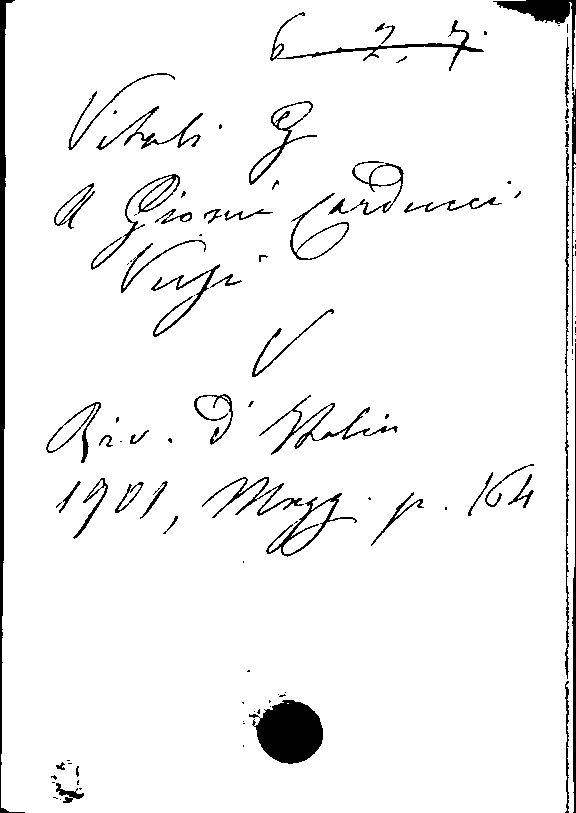 6 2, 7.
Vitali G
A Giosuè Carducci.
Versi
V
Riv. d'Italia
1901, Magg. p. 164